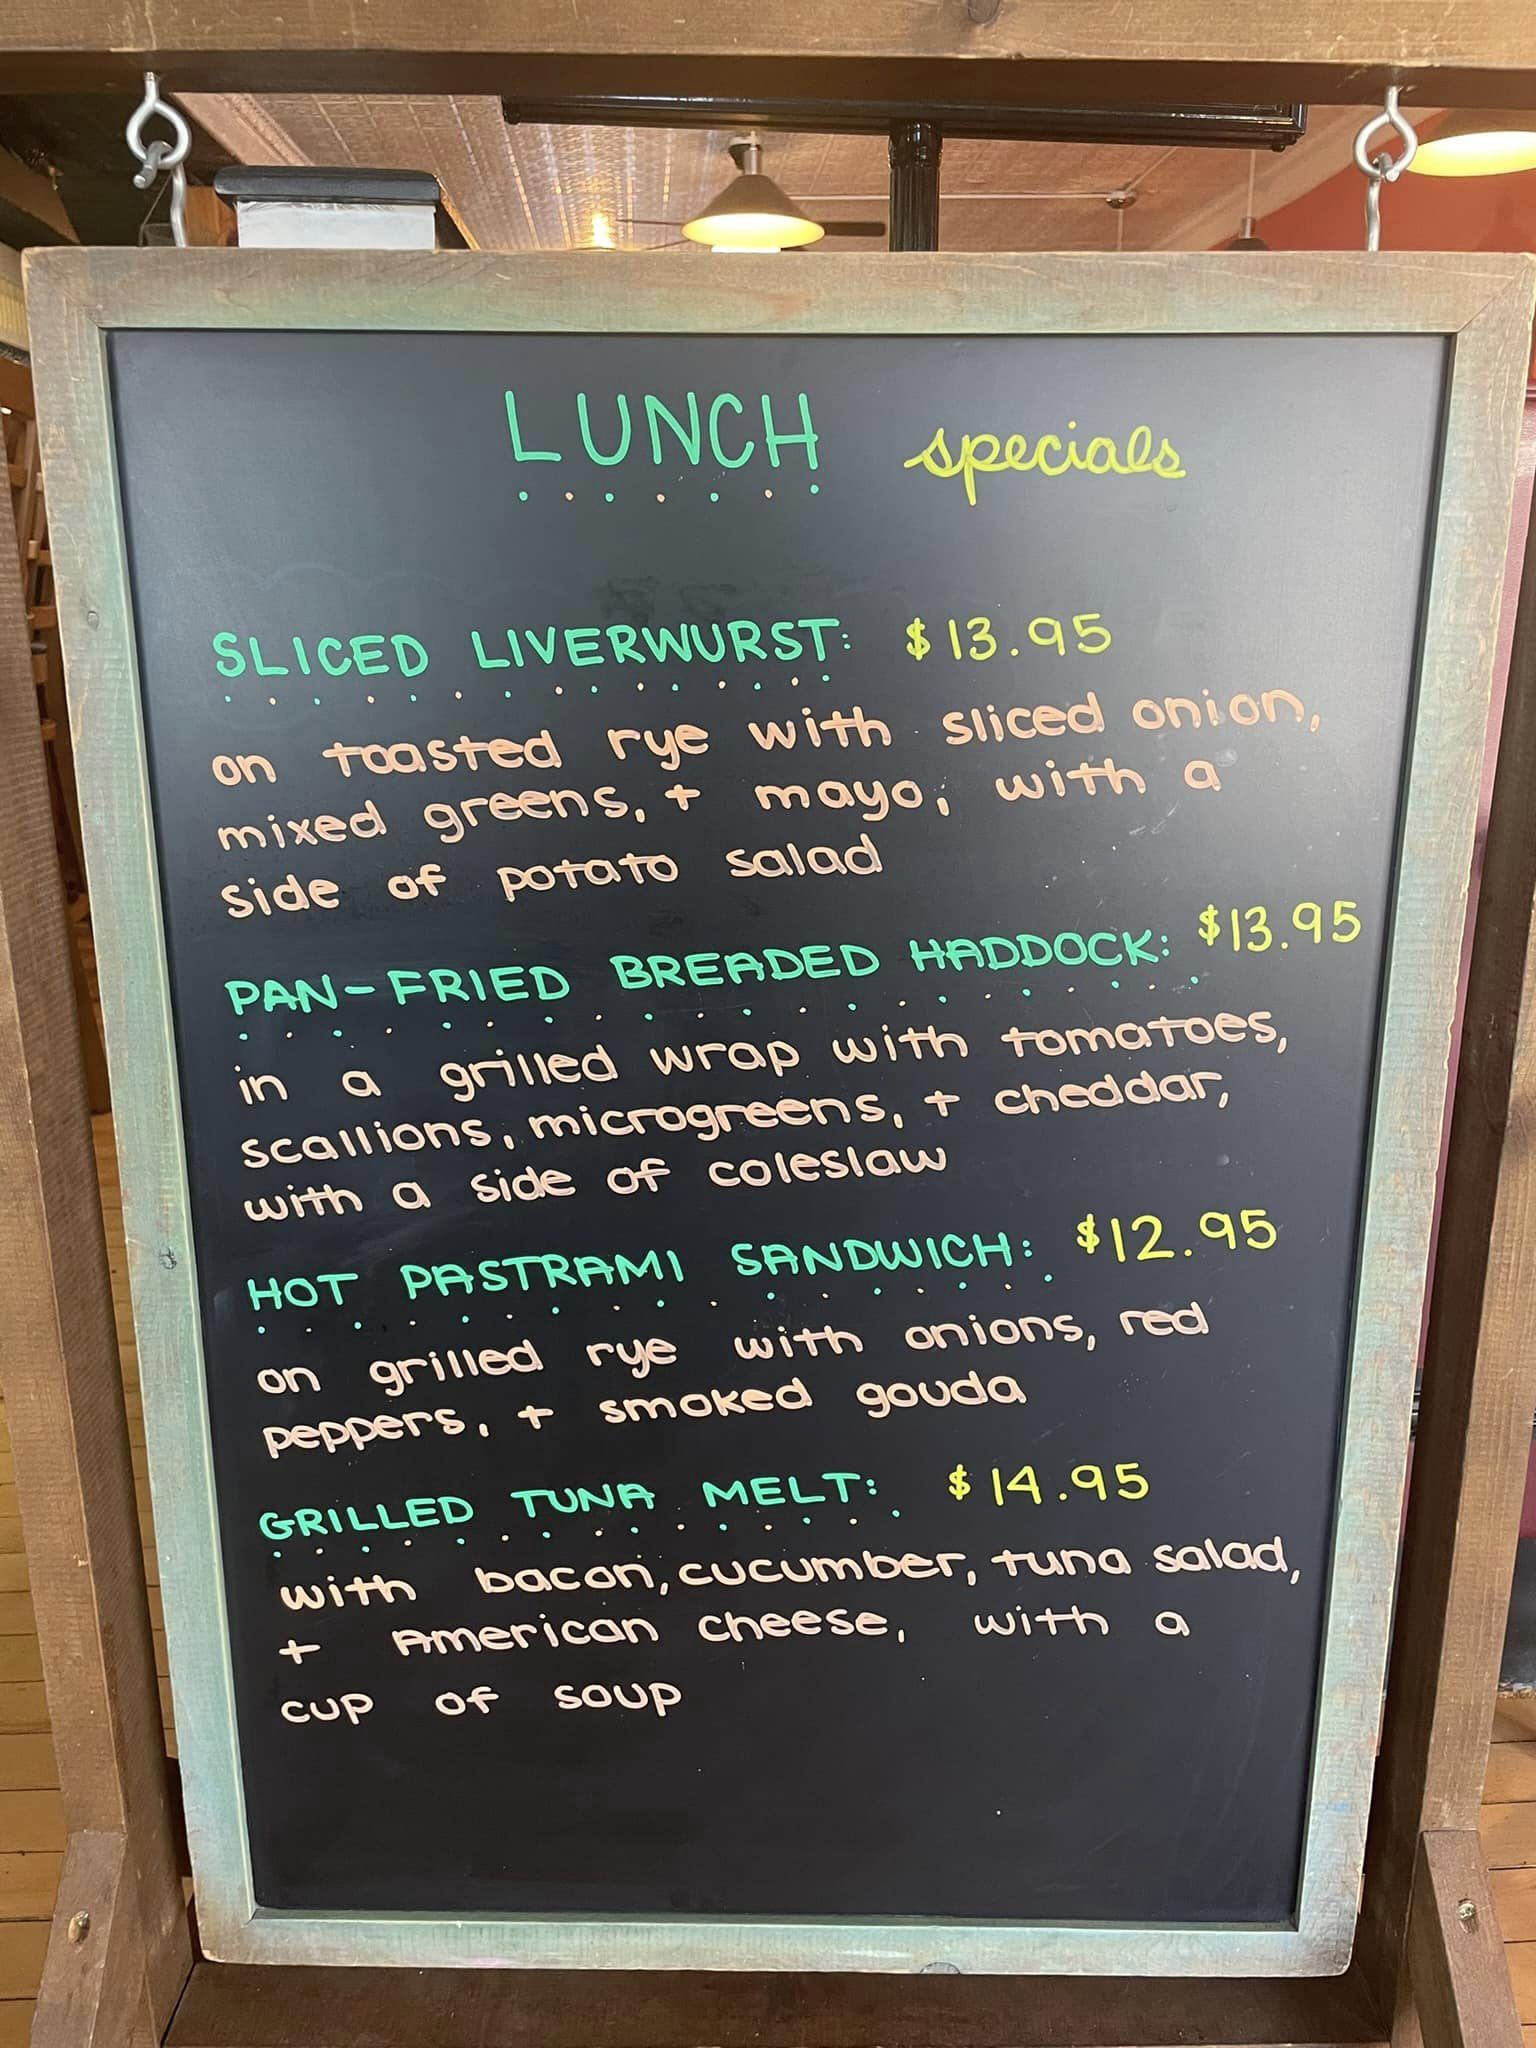 LUNCH specials
SLICED LIVERWURST: $13.95
on toasted rye with sliced onion,
mixed greens, + mayo, with a
side of potato salad
PAN-FRIED BREADED HADDOCK: $13.95
in a grilled wrap with tomatoes,
scallions, microgreens, + cheddar,
with a side of coleslaw
HOT PASTRAMI SANDWICH: $12.95
on grilled rye with onions, red
peppers, + smoked gouda
GRILLED TUNA MELT: $14.95
with bacon, cucumber, tuna salad,
+ American cheese, with a
cup of soup